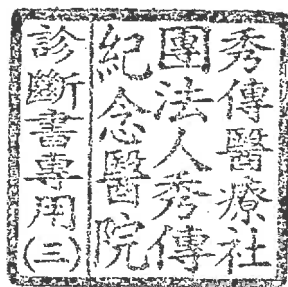 秀傳醫療社
團法人秀傳
紀念醫院
診斷書專用(三)